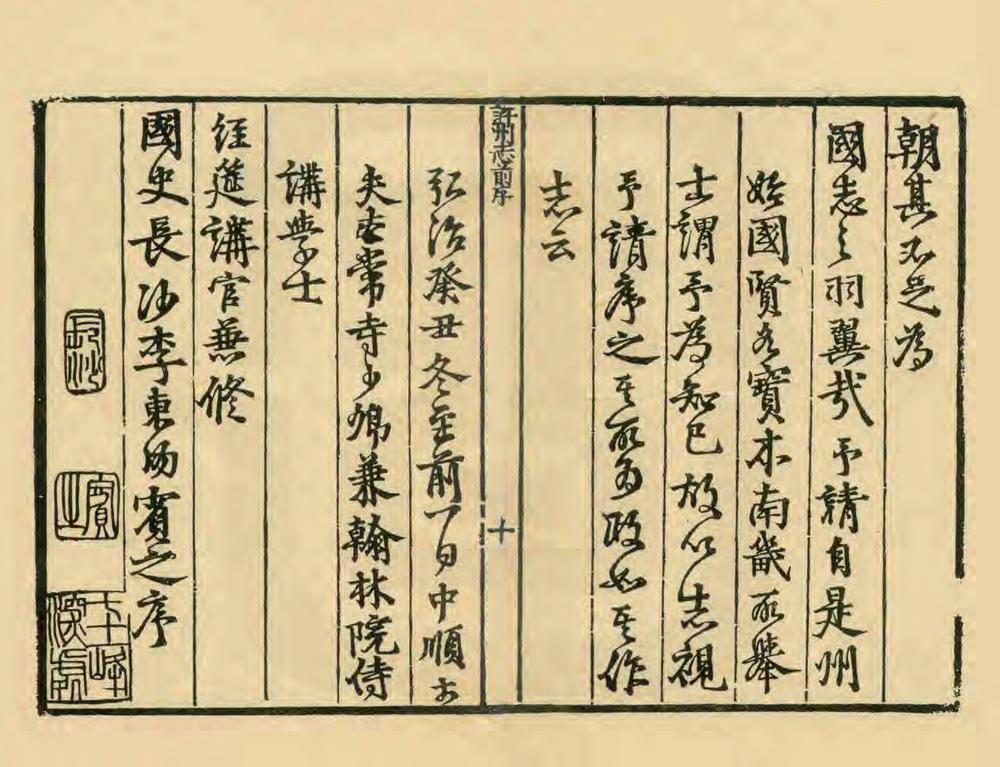 朝其不足為
國志之羽翼哉予請自是州
始國賢名寶本南畿所舉
士謂予為知己故以志視
予請序之其所為政如其作
志云
許州志前序
十
弘治癸丑冬至前一日中順大
夫太常寺少卿兼翰林院侍
講學士
經筵講官兼修
國史長沙李東陽賓之序
長沙
賓之